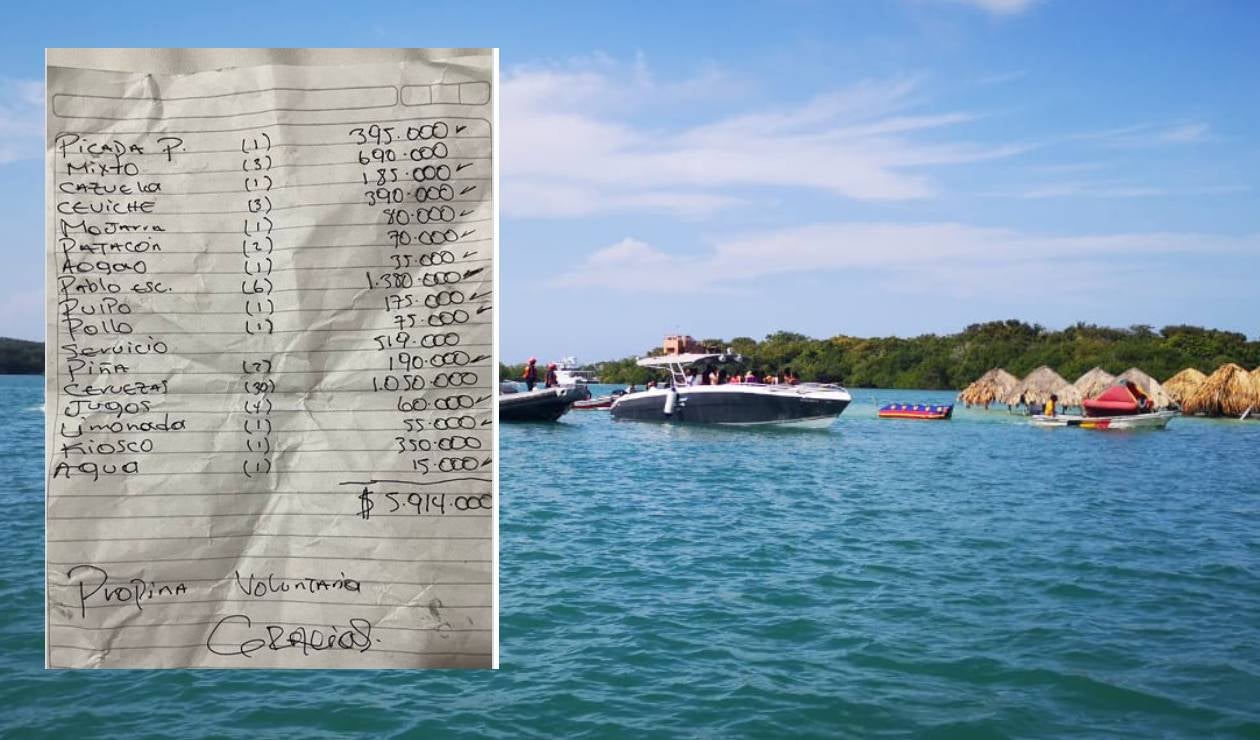 Picada P. (1) 395.000
Mixto (3) 690.000
Cazuela (1) 185.000
Ceviche (3) 390.000
Mojarra (1) 80.000
Patacón (2) 70.000
Aogao (1) 35.000
Pablo Esc. (6) 1.380.000
Pulpo (1) 175.000
Pollo (1) 75.000
Servicio 519.000
Piña (2) 190.000
Cervezas (30) 1.050.000
Jugos (4) 60.000
Limonada (1) 55.000
Kiosco (1) 350.000
Agua (1) 15.000
$ 5.914.000
Propina Voluntaria
Gracias.